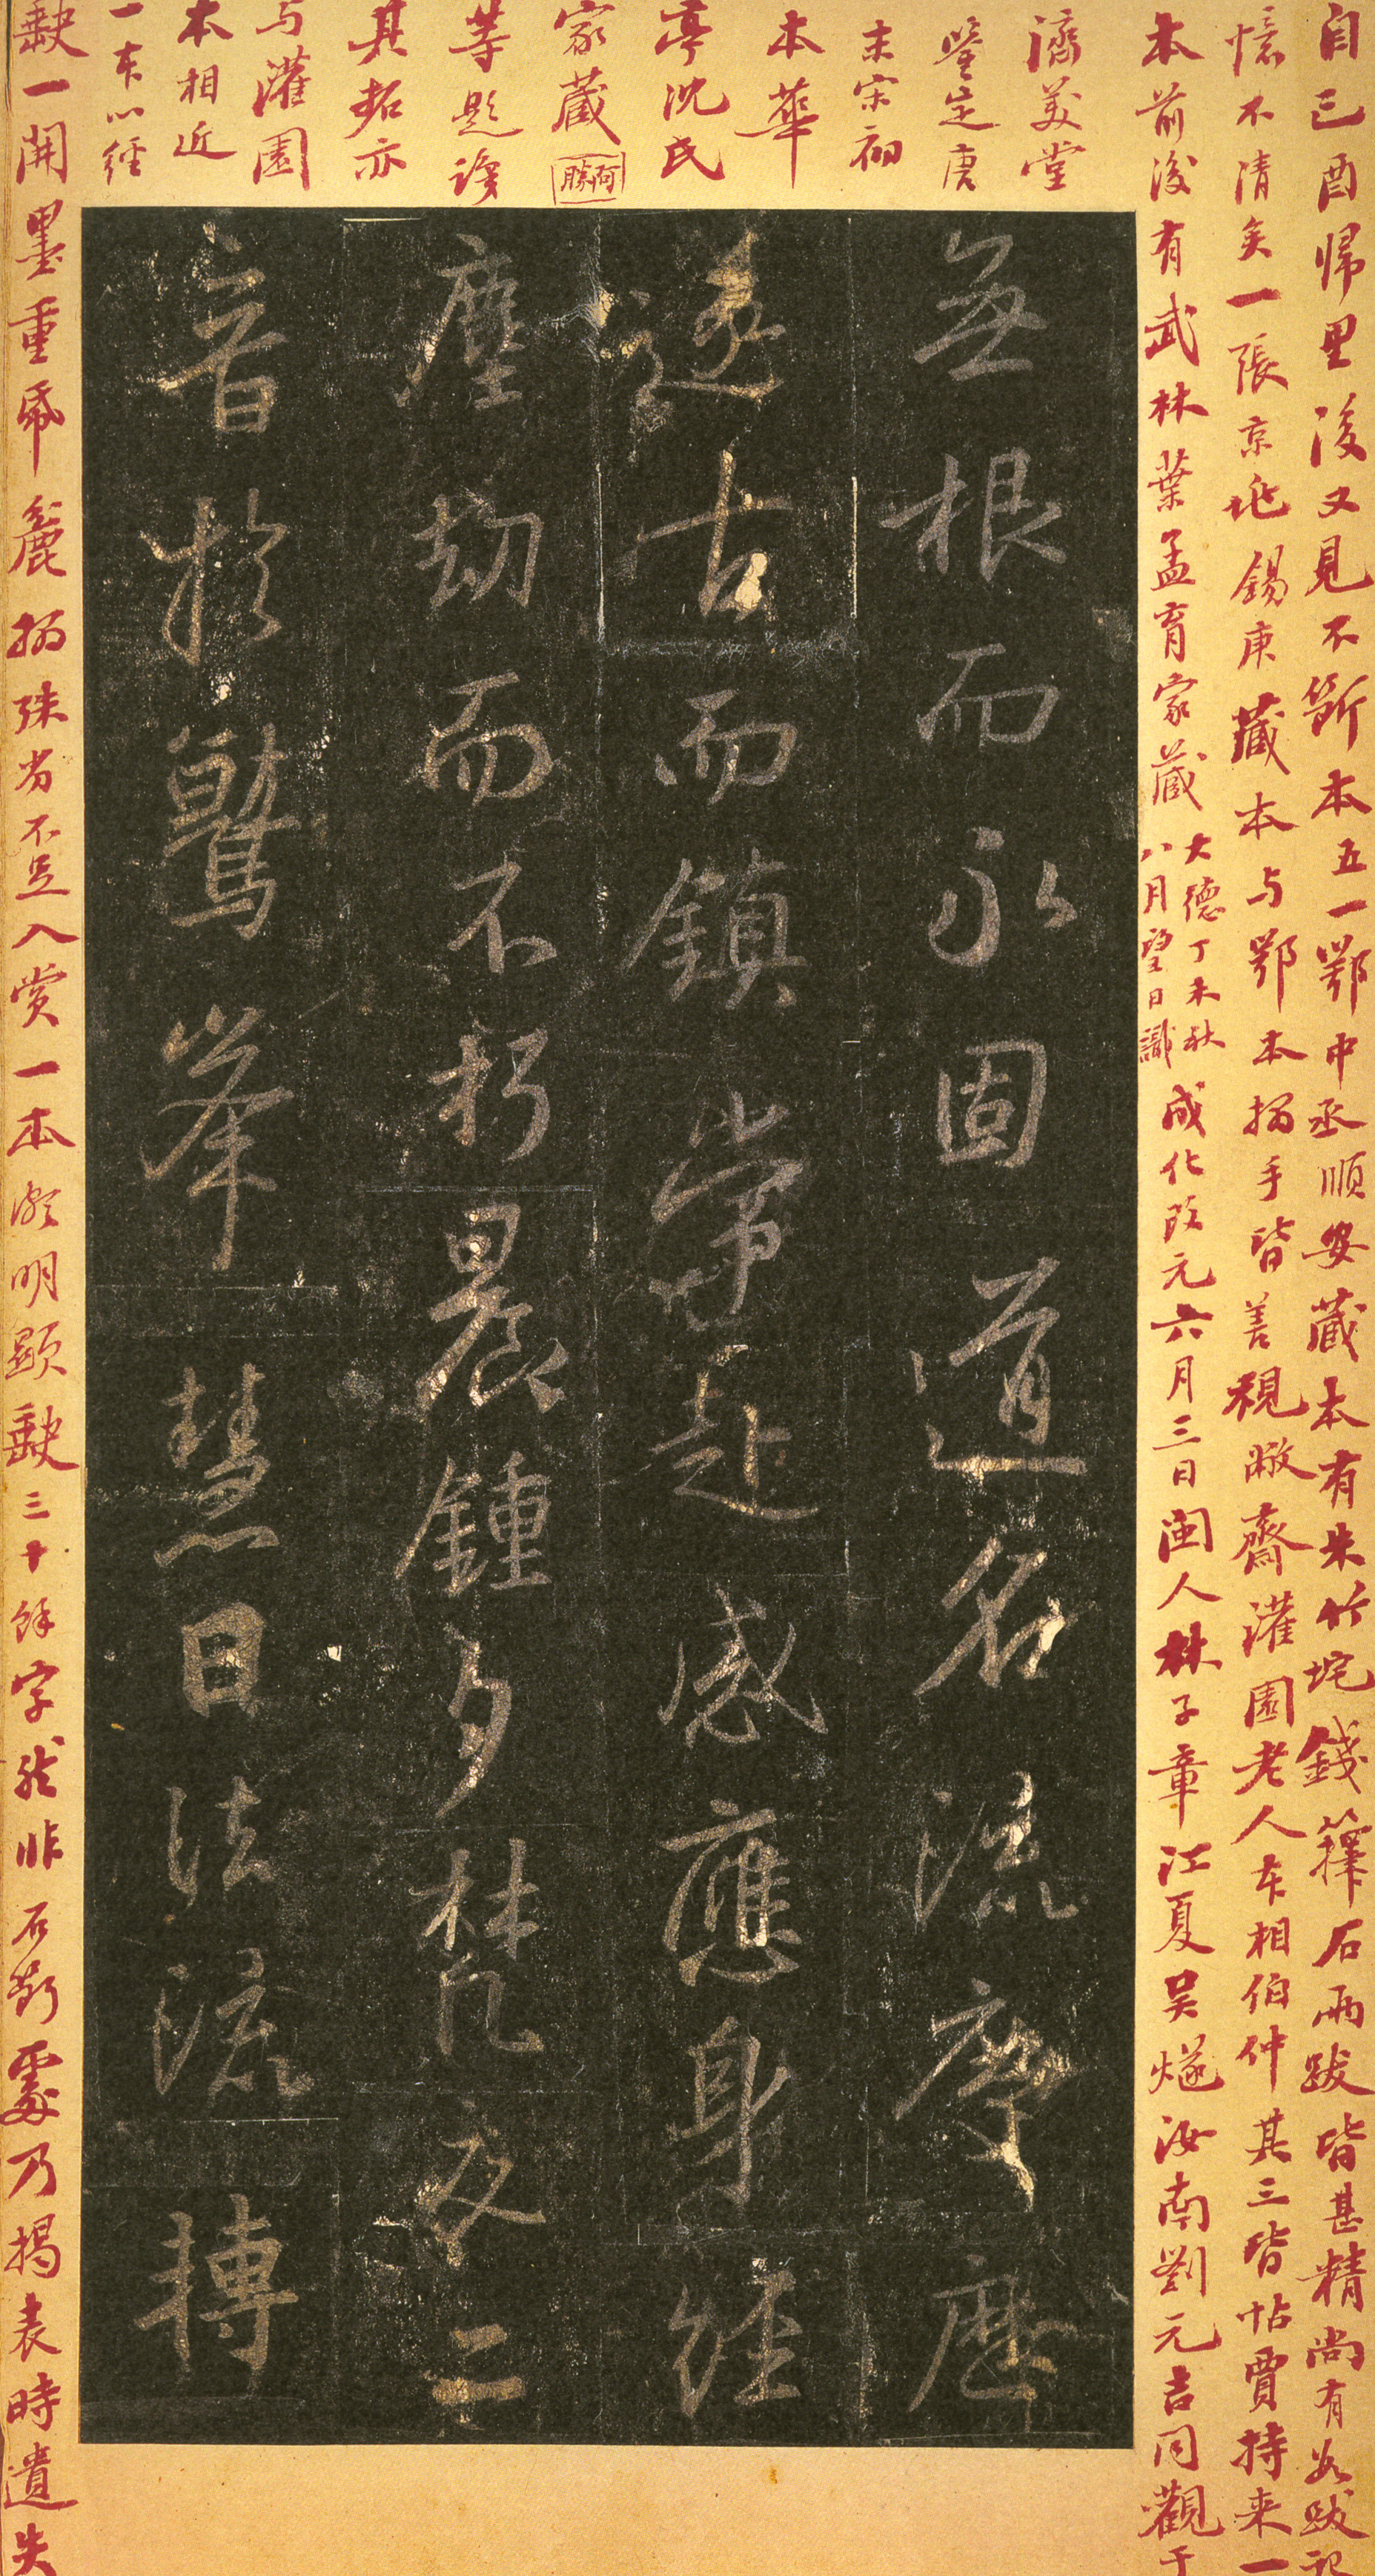 自己酉帰里後又見不斷本五一鄂中丞順安藏本有朱竹垞錢籜石兩跋皆甚精尚有数跋記
憶不清矣一張京兆錫庚藏本与鄂本搨手皆善視敝齋灌園老人本相伯仲其三皆帖賈持来一
本前後有武林葉孟育家藏
大德丁未秋
八月望日識
成化改元六月三日閩人林子章江夏吴燧汝南劉元吉同觀于
濟美堂
鑒定唐
末宋初
本華
亭沈氏
家藏
等題
其拓亦
与灌園
本相近
一本以經
缺一開墨重帋麁搨殊劣不足入賞一本頗明顯缺三十餘字然非石斷處乃揭表時遺失
無根而永固道名流慶歷
遂古而鎮常赴感應身經
塵劫而不朽晨鍾夕梵交二
音於鷲峯慧日法流轉